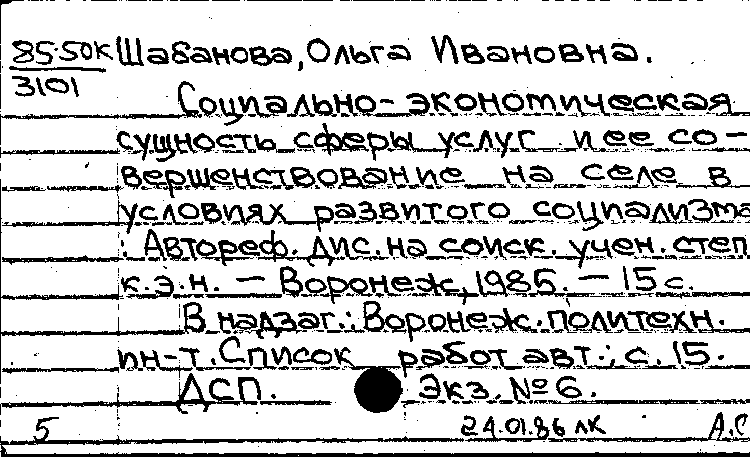 85-50К Шабанова, Ольга Ивановна.
3101
Социально-экономическая
сущность сферы услуг и ее со-
вершенствование на селе в
условиях развитого социализма
: Автореф. дис. на соиск. учен. степ
к.э.н. — Воронеж, 1985. — 15 с.
В надзаг.: Воронеж. политехн.
ин-т. Список работ авт.: с. 15.
ДСП. Экз. № 6.
5 24.01.86 ЛК А.С